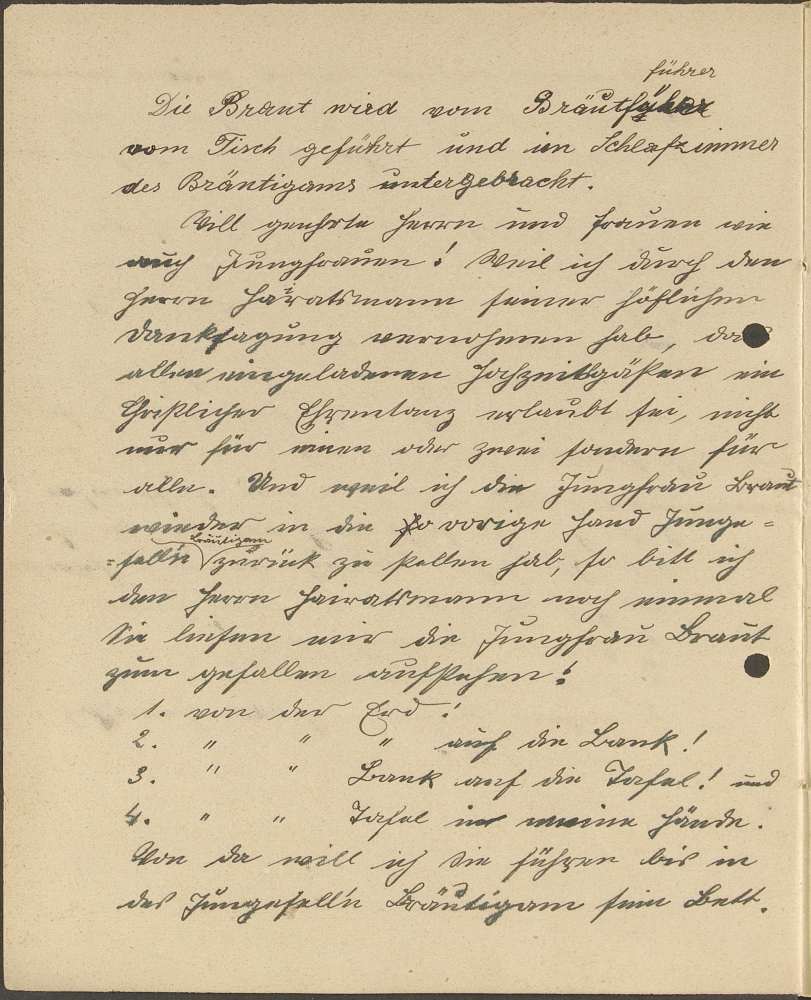 führer
Die Braut wird vom Bräutführer
vom Tisch geführt und im Schlafzimmer
des Bräutigams untergebracht.
Vill geehrte Herrn und Frauen wie
auch Jungfrauen! Weil ich durch den
Herrn Hairatsmann seiner höflichen
Danksagung vernohmen hab, das
allen eingeladenen Hochzeitsgäßen ein
Chrißlicher Ehrentanz erlaubt sei, nicht
nur für einen oder zwei sondern für
alle. Und weil ich die Jungfrau Braut
wieder in die vorige Hand Junge=
Bräutigam
=sell'n zurück zu stellen hab, so bitt ich
den Herrn Hairatsmann noch einmal
Sie liesen mir die Jungfrau Braut
zum gefallen aufstehen!
1. von der Erd!
2. " " " auf die Bank!
3. " " Bank auf die Tafel! und
4. " " Tafel in meine Hände.
Von da will ich Sie führen bis in
des Jungesell'n Bräutigam sein Bett.